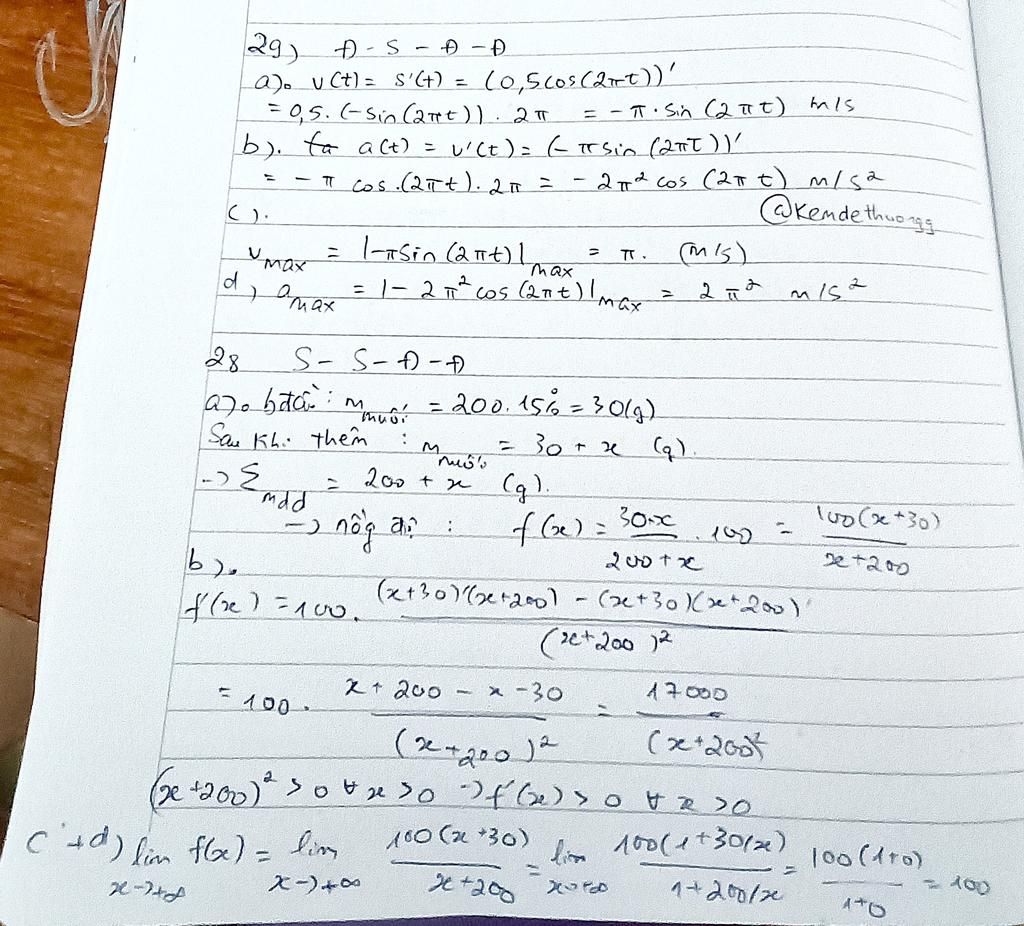 29) Đ - S - Đ - Đ
a). v(t) = s'(t) = (0,5cos(2πt))'
= 0,5.(-sin(2πt)). 2π = -π.sin(2πt) m/s
b). a(t) = v'(t) = (-πsin(2πt))'
= -π cos.(2πt). 2π = -2π² cos(2πt) m/s²
c). @Kendethuongg
v max = |-πsin(2πt)| max = π. (m/s)
d) a max = |-2π² cos(2πt)| max = 2π² m/s²
28 S - S - Đ - Đ
a). bđầu: m muối = 200.15% = 30(g)
Sau khi thêm : m muối = 30 + x (g).
-> Σ mdd = 200 + x (g).
-> nồng độ : f(x) = 30+x / 200+x . 100 = 100(x+30) / x+200
b).
f'(x) = 100. (x+30)'(x+200) - (x+30)(x+200)' / (x+200)²
= 100. x+200-x-30 / (x+200)² = 17000 / (x+200)²
(x+200)² > 0 ∀ x > 0 -> f'(x) > 0 ∀ x > 0
c+d) lim x->+∞ f(x) = lim x->+∞ 100(x+30) / x+200 = lim x->+∞ 100(1+30/x) / 1+200/x = 100(1+0) / 1+0 = 100